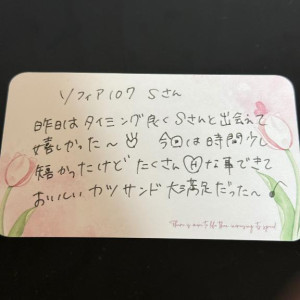 ソフィア107 Sさん
昨日はタイミング良くSさんと出会えて
嬉しかった〜 今回は時間少し
短かったけどたくさんHな事できて
おいしいカツサンド大満足だった〜